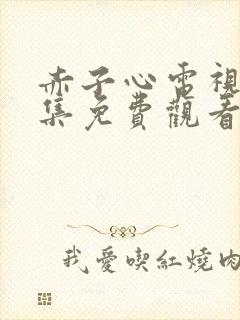 赤子心電視
集免費觀看
我愛喫紅燒肉